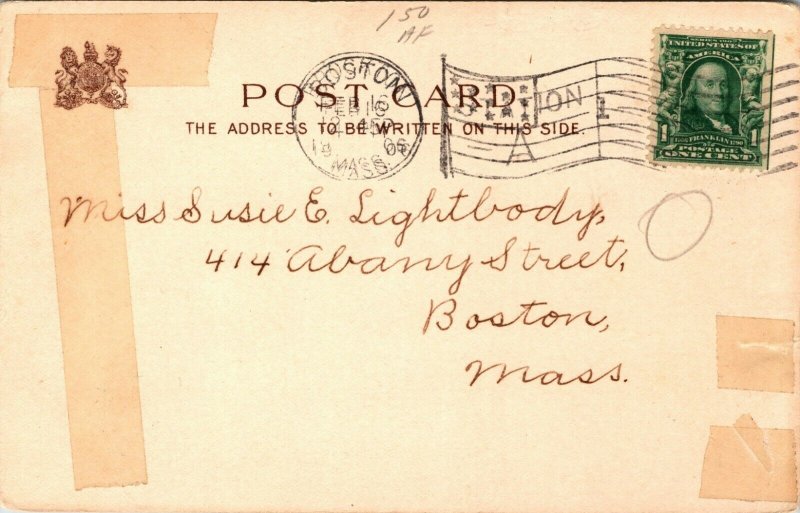 150
AF
BOSTON
FEB 16
1906
MASS.
STATION
A
1
SERIES 1902
UNITED STATES OF
AMERICA
1 FRANKLIN 1790 1
POSTAGE
ONE CENT
POST CARD.
THE ADDRESS TO BE WRITTEN ON THIS SIDE.
Miss Susie E. Lightbody,
414 Abany Street,
Boston,
Mass.